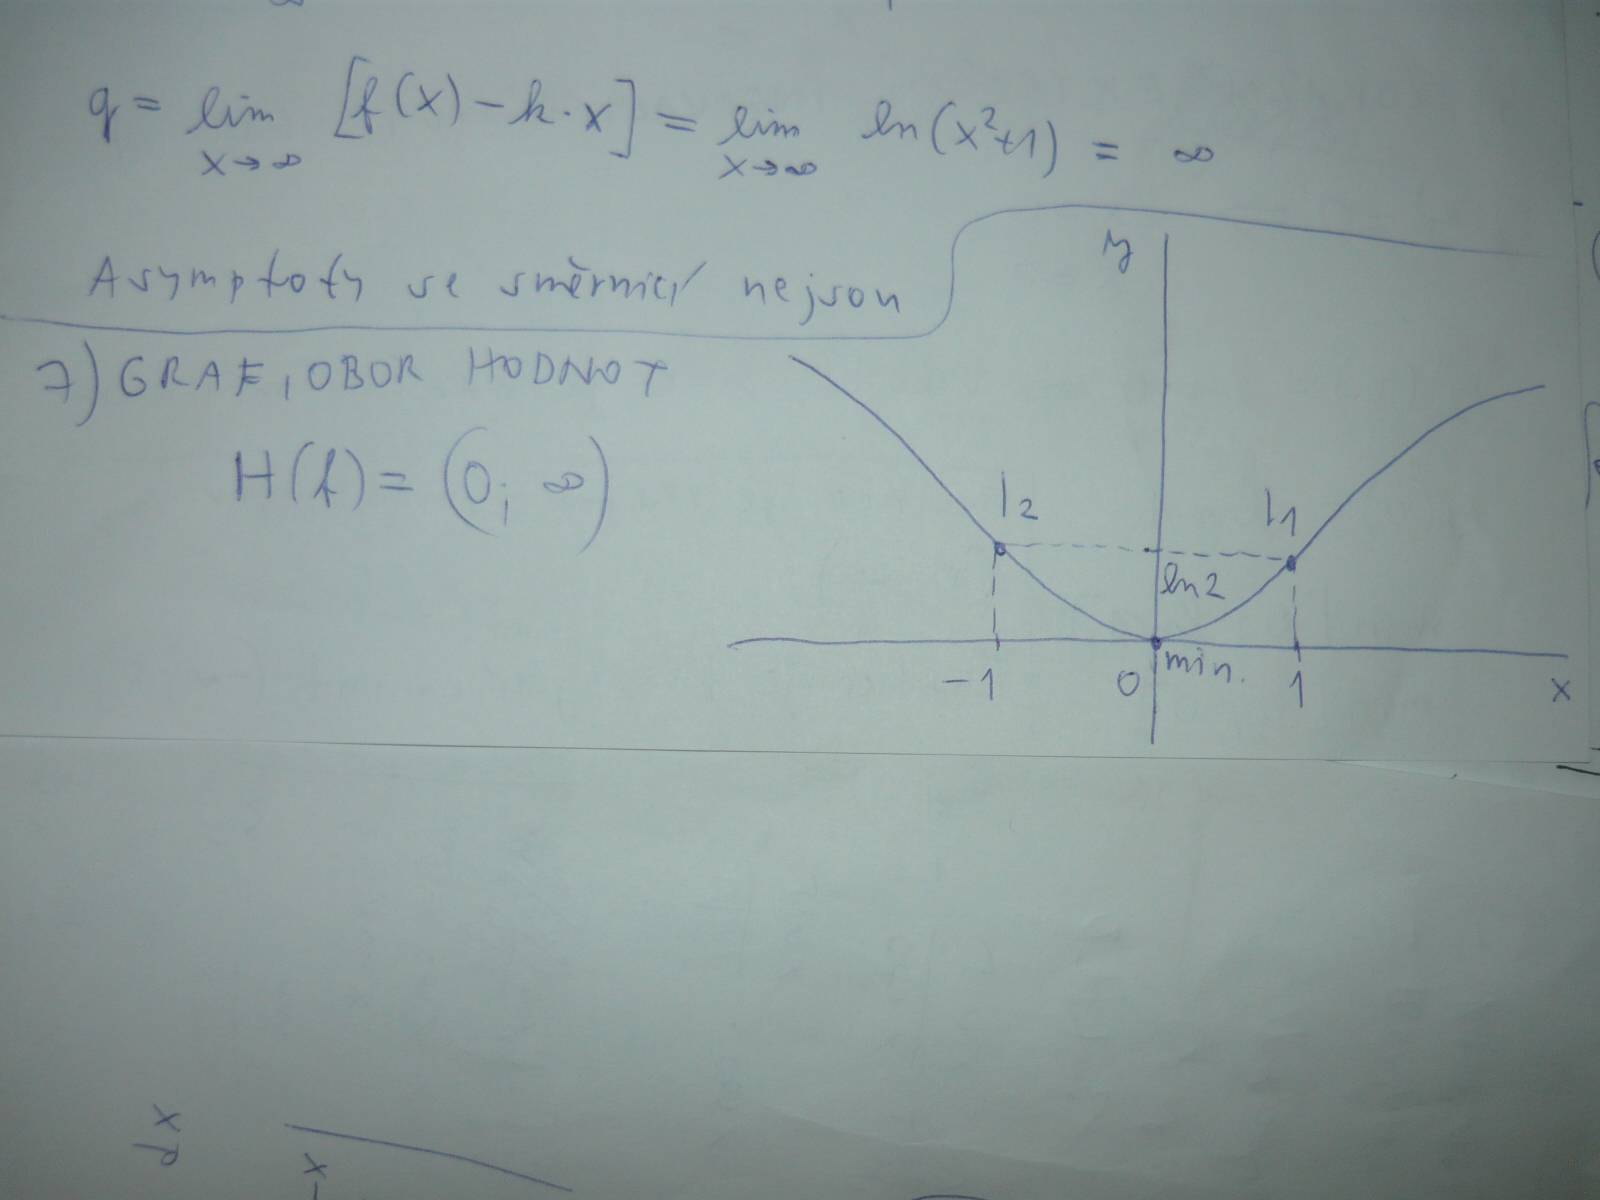 q = lim [f(x) - k·x] = lim ln(x²+1) = ∞
x→∞ x→∞
Asymptoty se směrnicí nejsou
7) GRAF, OBOR HODNOT
H(f) = (0; ∞)
y
I₂
I₁
ln2
-1
0
min.
1
x